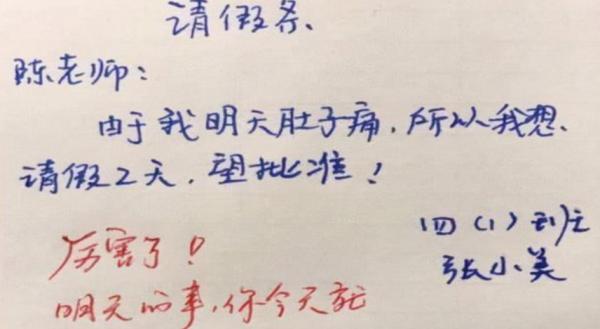 请假条
陈老师：
由于我明天肚子痛，所以我想
请假2天，望批准！
四（1）班
张小美
厉害了！
明天的事，你今天就